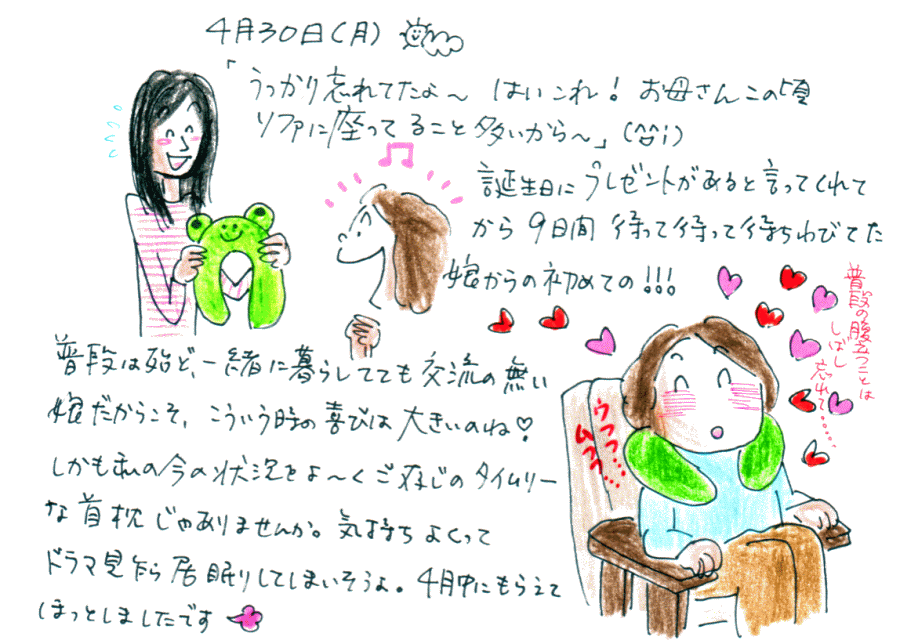 4月30日(月)
「うっかり忘れてたよ〜 はいこれ! お母さんこの頃
ソファに座ってること多いから〜」(^^;)
誕生日にプレゼントがあると言ってくれて
から9日間 待って待って待ちわびてた
娘からの初めての!!!
普段の腹立つことは
しばし
忘れて……
普段は殆ど、一緒に暮らしてても交流の無い
娘だからこそ、こういう時の喜びは大きいのね♡
しかも私の今の状況をよ〜くご存じのタイムリー
な首枕じゃありませんか。気持ちよくって
ドラマ見乍ら居眠りしてしまいそうよ。4月中にもらえて
ほっとしましたです
ウフフ…
ムフフ…